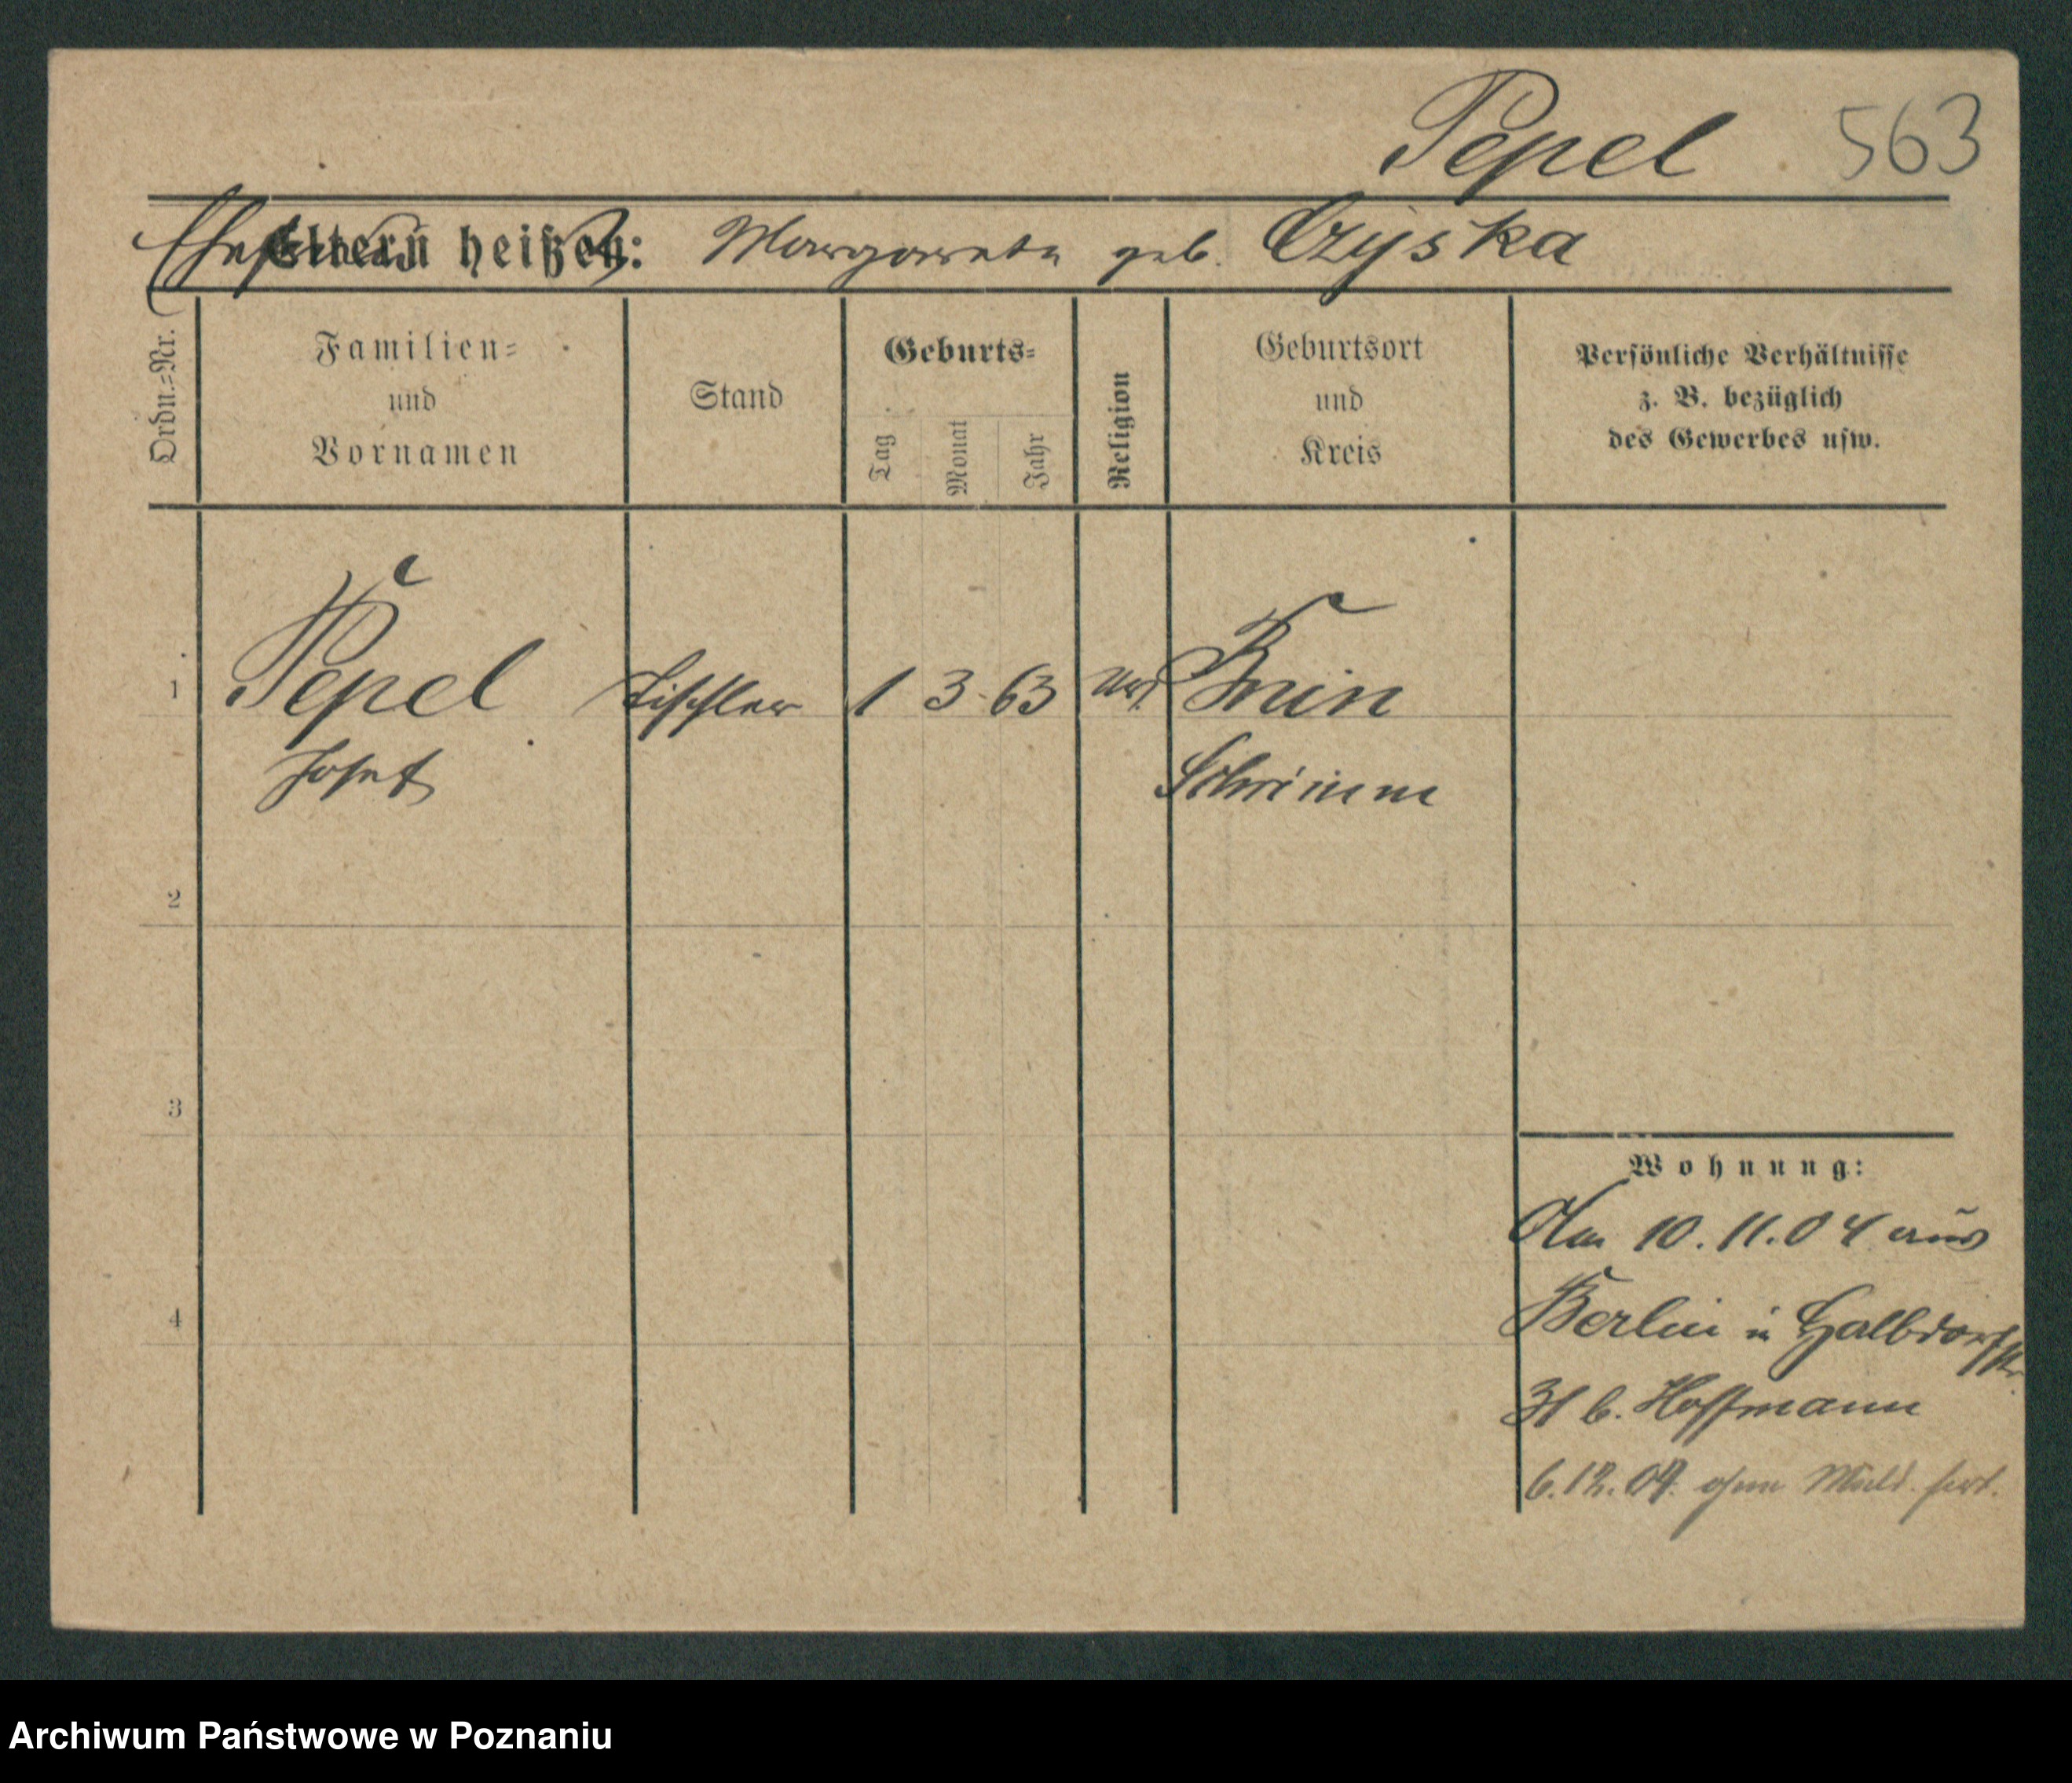 Pepel 563
Ehefrau Eltern heißen: Margareta geb. Czyska
Ordn.=Nr.
Familien=
und
Vornamen
Stand
Geburts=
Tag
Monat
Jahr
Religion
Geburtsort
und
Kreis
Persönliche Verhältnisse
z. B. bezüglich
des Gewerbes usw.
1 Pepel Tischler 1 3 63 Bnin
Josef Schrimm
2
3
4
Wohnung:
Am 10.11.04 aus
Berlin in Halbdorfstr.
31 b. Hoffmann
6.12.04. ohne Meld. fort.
Archiwum Państwowe w Poznaniu